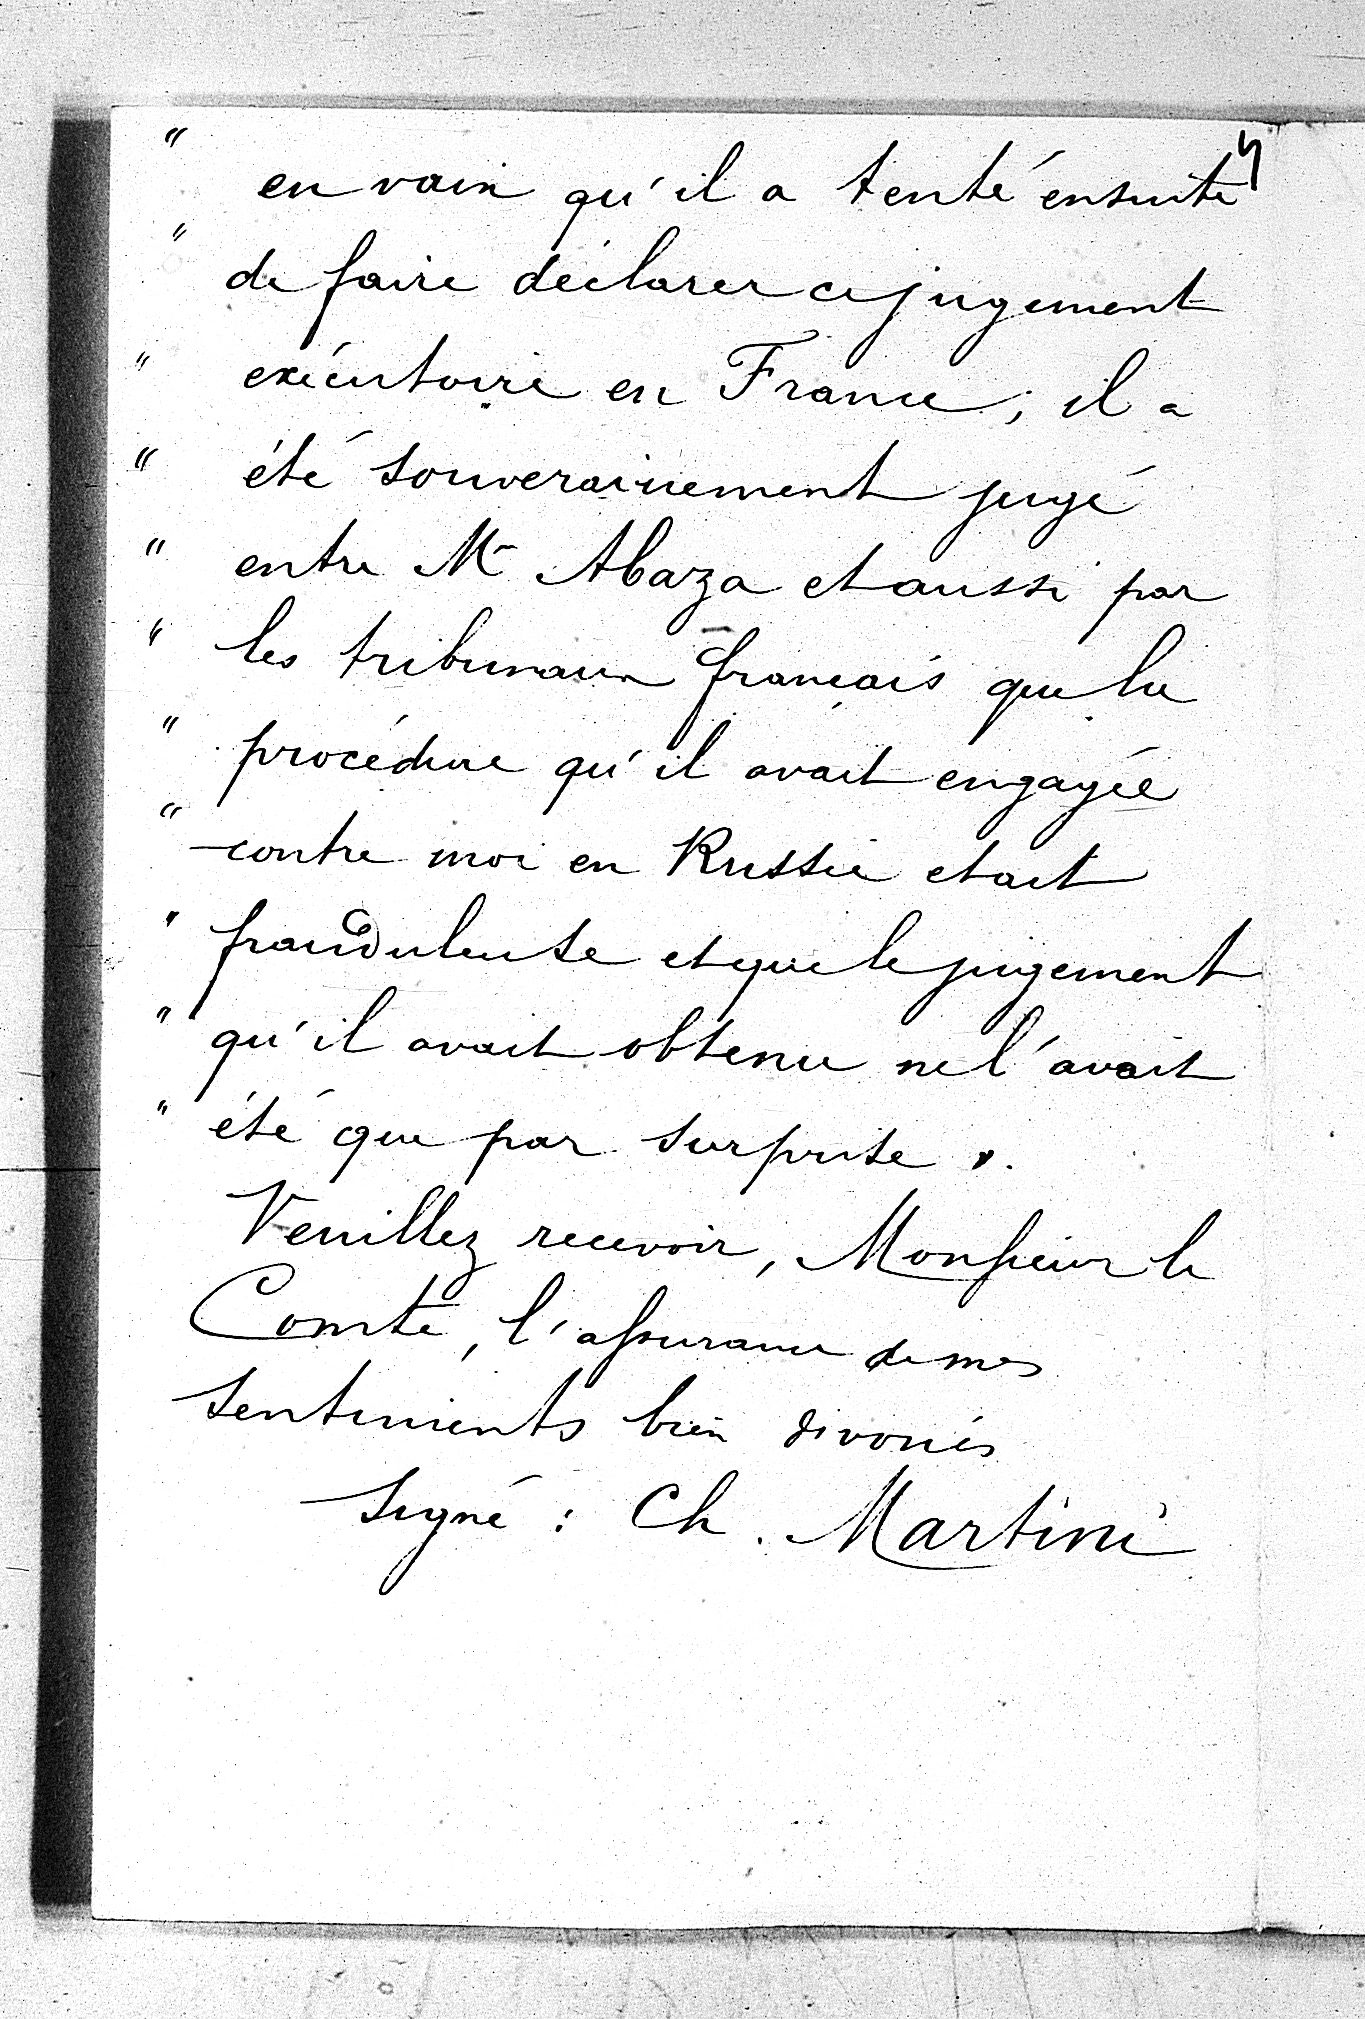 " en vain qu'il a tenté ensuite
" de faire déclarer ce jugement
" exécutoire en France ; il a
" été souverainement jugé
" entre Mr Abaza et aussi par
" les tribunaux français que la
" procédure qu'il avait engagée
" contre moi en Russie etait
" frauduleuse et que le jugement
" qu'il avait obtenu ne l'avait
" été que par surprise ".
Veuillez recevoir, Monsieur le
Comte, l'assurance de mes
sentiments bien dévoués
Signé : Ch. Martini